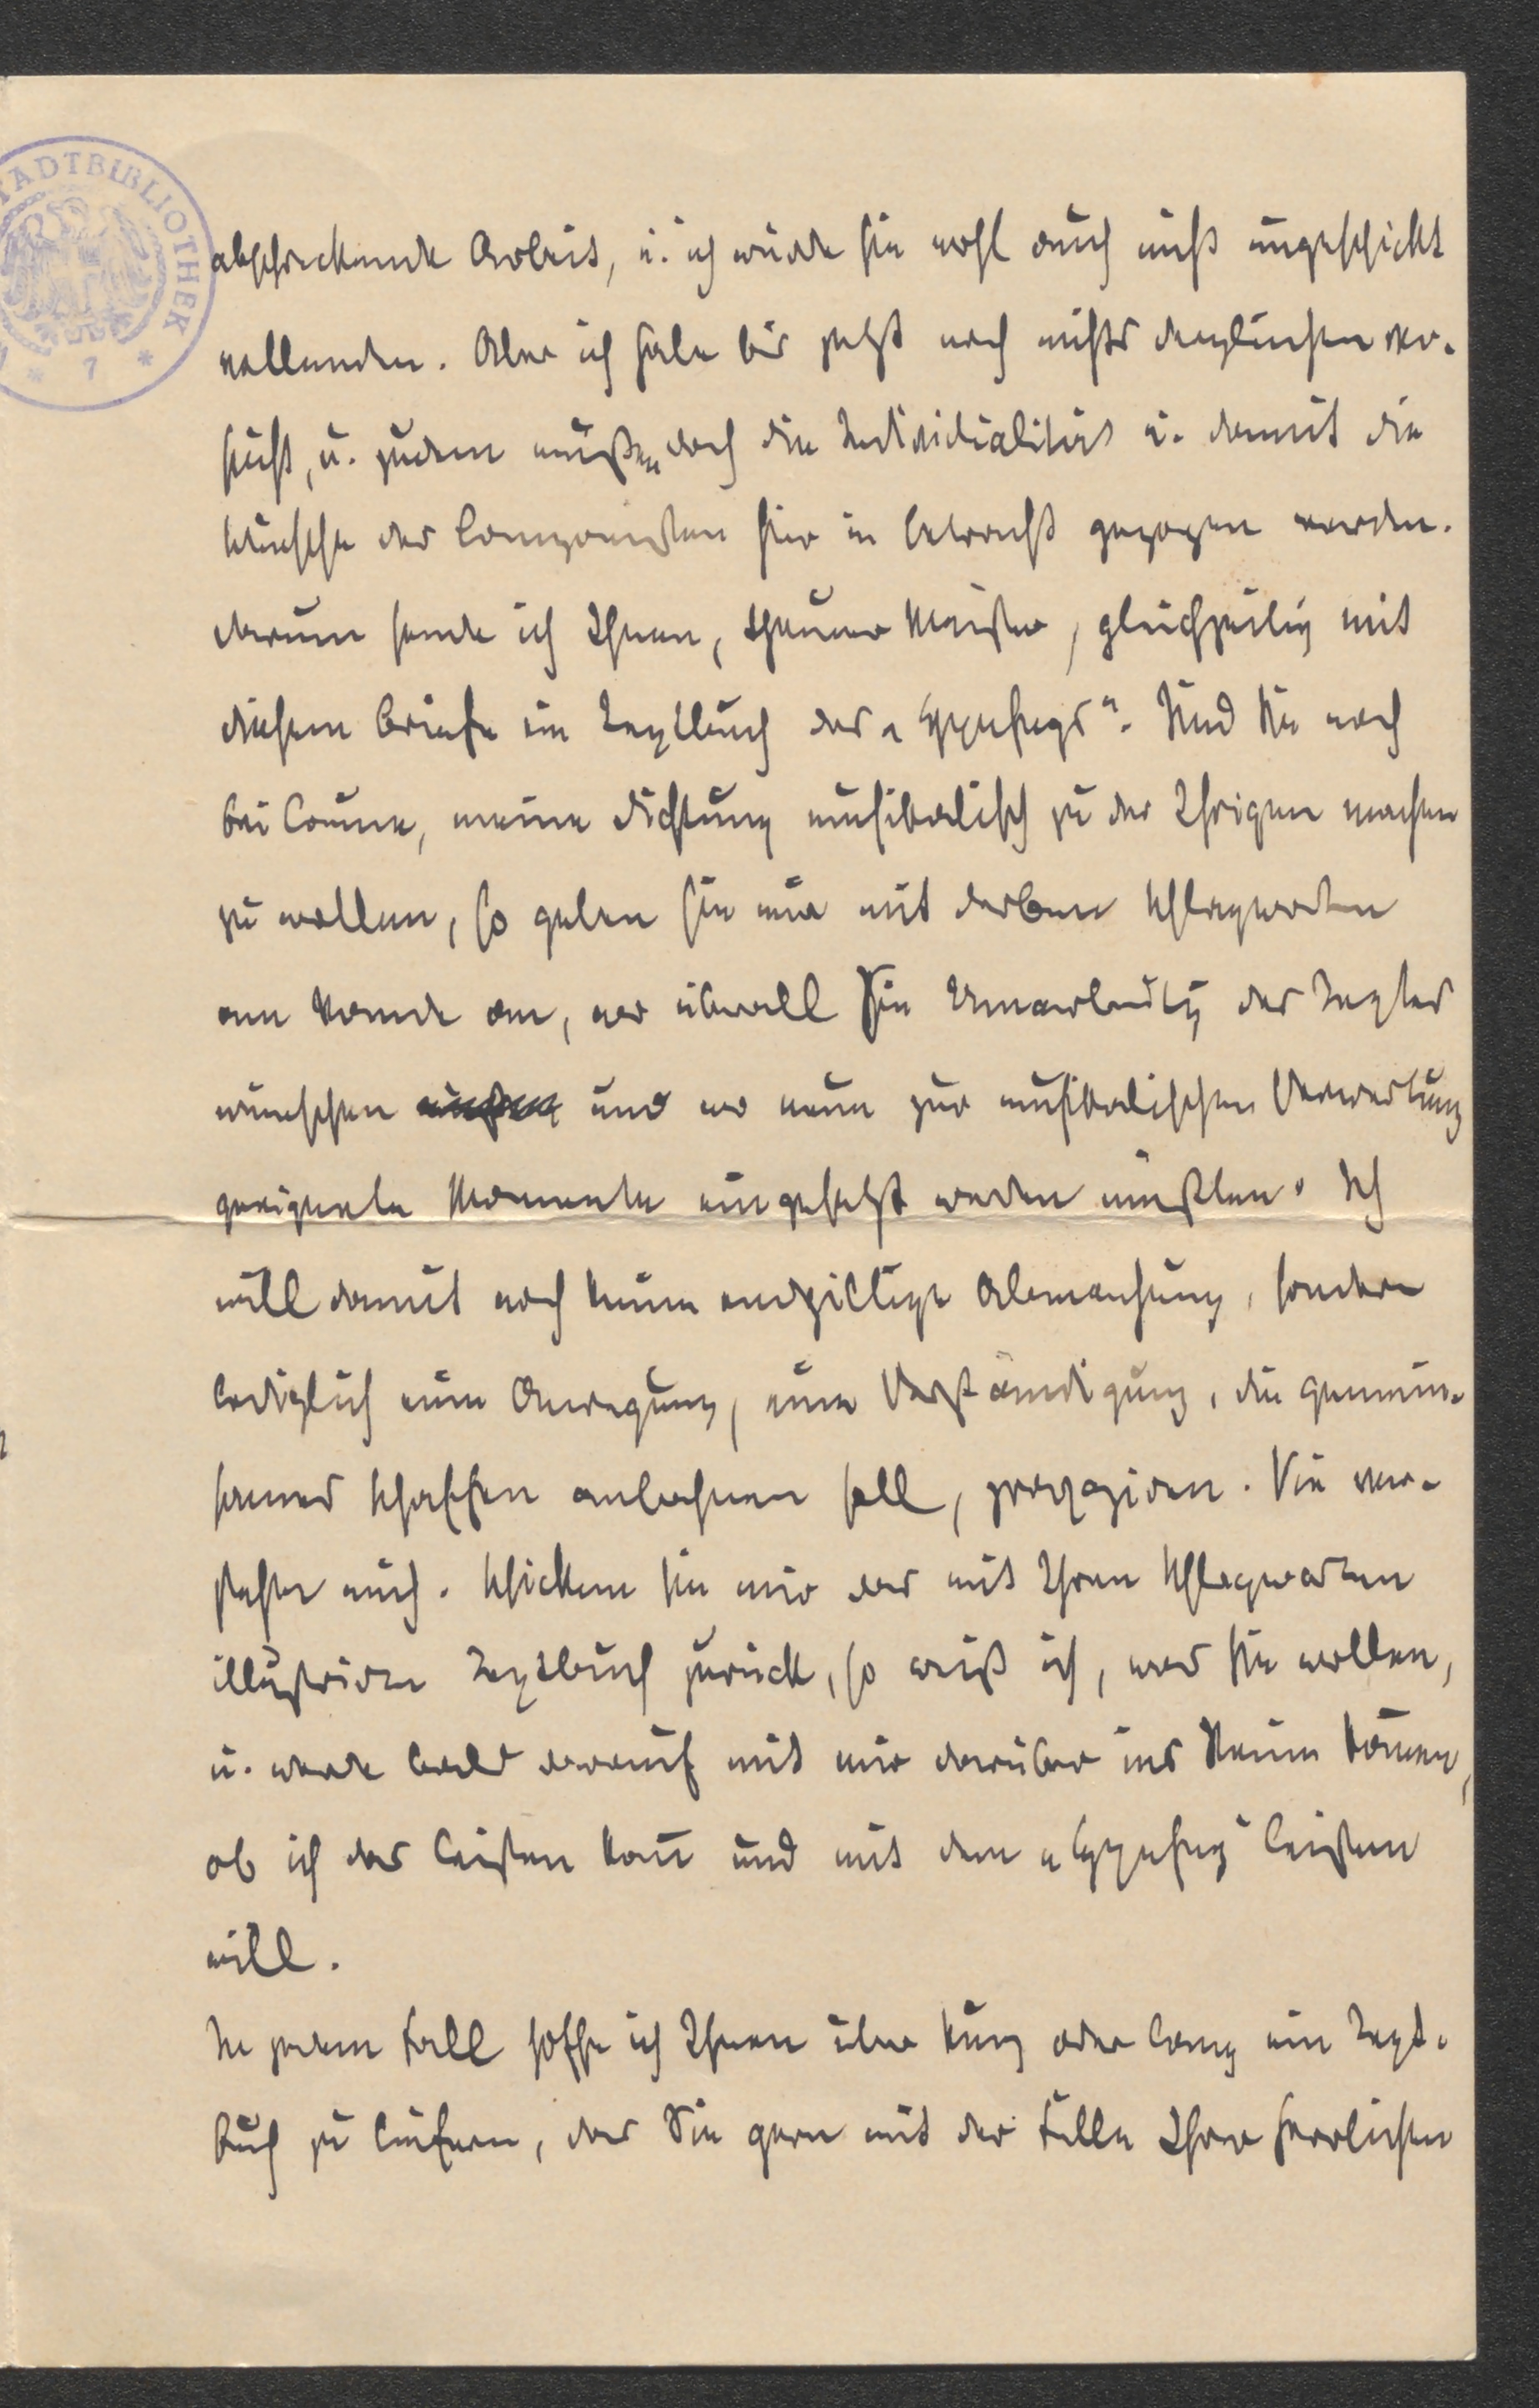 STADTBIBLIOTHEK
* 7 *
abschreckende Arbeit, u. ich würde sie wohl auch nicht ungeschickt
vollenden. Aber ich habe bis jetzt noch nichts dergleichen ver-
sucht, u. zudem müßen doch die Individualität u. damit die
Wünsche des Componisten hier in Betracht gezogen werden.
Darum sende ich Ihnen, theurer Meister, gleichzeitig mit
diesem Briefe ein Textbuch des „ “. Sind Sie noch
bei Laune, meine Dichtung musikalisch zu der Ihrigen machen
zu wollen, so geben Sie mir mit derben Schlagworten
am Rande an, wo überall Sie Umarbeitg des Textes
wünschen und wo neue zur musikalischen Verwertung
geeignete Momente eingesetzt werden müßten. Ich
will damit noch keine endgiltige Abmachung, sondern
lediglich eine Anregung, eine Verständigung, die gemein-
sames Schaffen anbahnen soll, proponiren. Sie ver-
stehen mich. Schicken Sie mir das mit Ihren Schlagworten
illustrirte Textbuch zurück, so weiß ich, was Sie wollen,
u. werde bald darauf mit mir darüber ins Reine kommen,
ob ich das leisten kann und mit dem „ “ leisten
will.
In jedem Fall hoffe ich Ihnen über kurz oder lang ein Text-
buch zu liefern, das Sie gern mit der Fülle Ihrer herrlichen